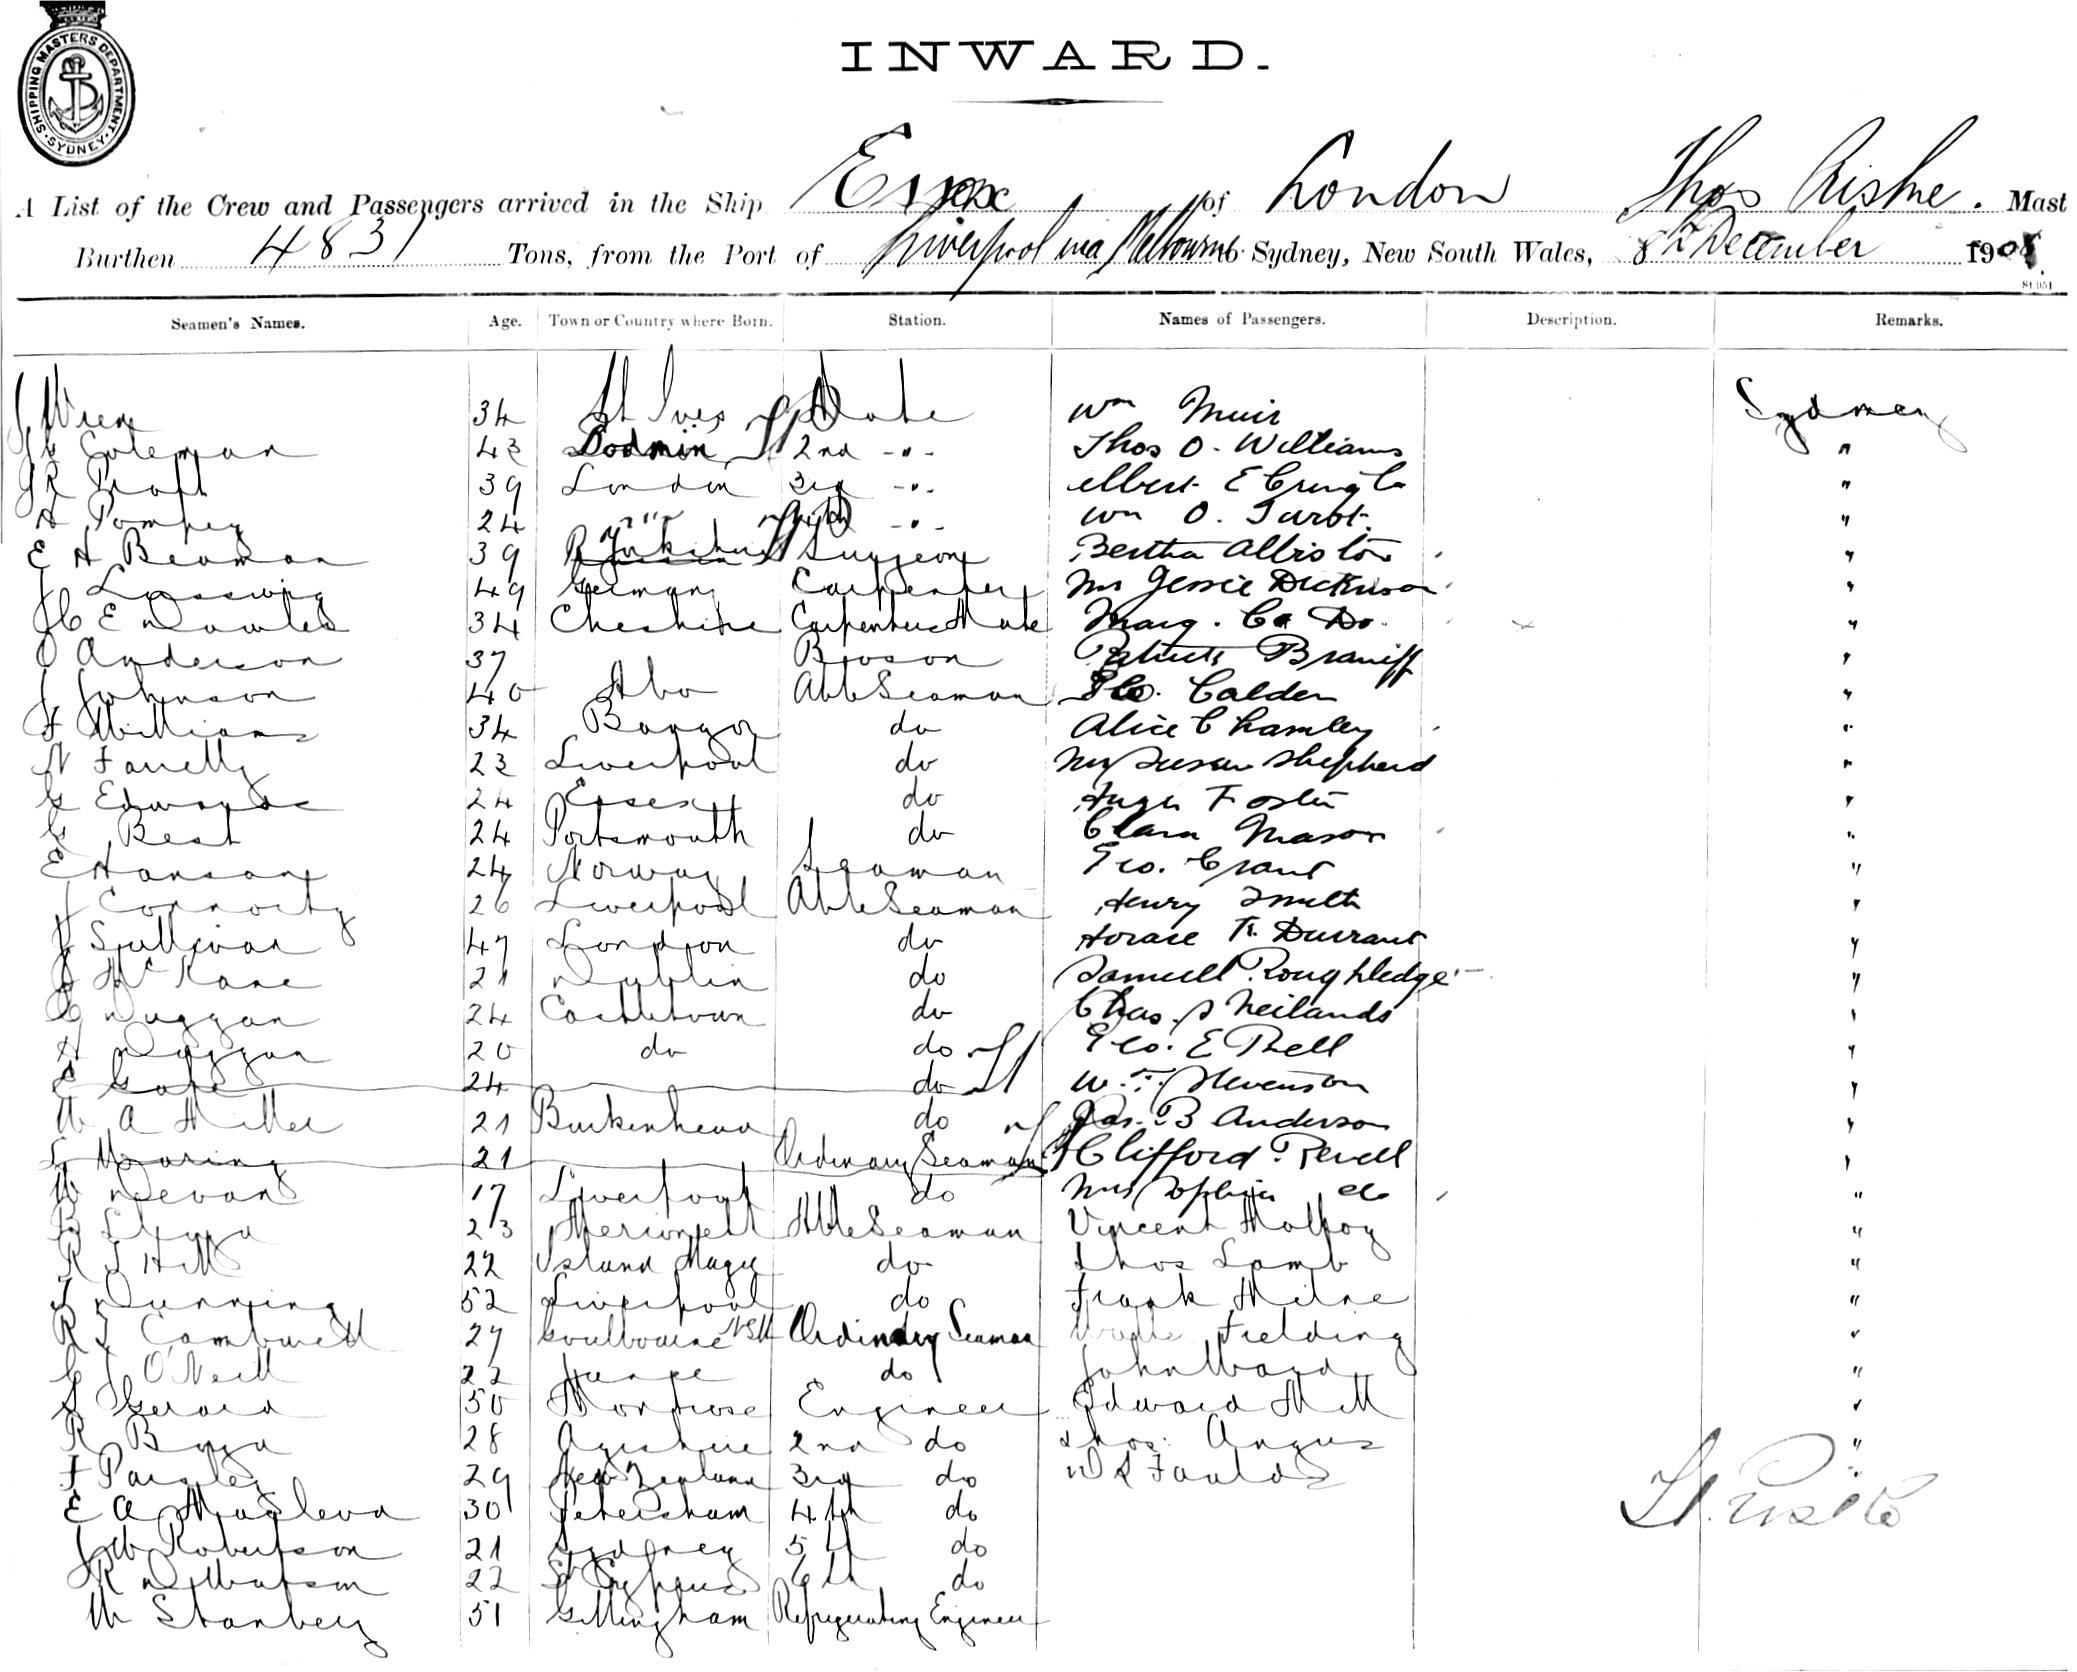 SHIPPING MASTERS DEPARTMENT · SYDNEY ·
INWARD.
A List of the Crew and Passengers arrived in the Ship Essex of London Thos Mast
Burthen 4831 Tons, from the Port of Liverpool via Melbourne to Sydney, New South Wales, 8th December 1908.
Seamen's Names. Age. Town or Country where Born. Station. Names of Passengers. Description. Remarks.
34 St Ives Mate Wm Muir Sydney
Coleman 43 Bodmin 2nd -"- Thos O. Williams "
39 London 3rd -"- Albert E "
A Pompey 24 -"- 4th -"- Wm O. "
E H Beaman 39 Yorkshire Surgeon Bertha Albiston "
J 49 Germany Carpenter Mrs Jessie Dickinson "
E Dowled 34 Cheshire Carpenters Mate Marg. Do. "
Anderson 37 Boson Braniff "
J Johnson 40 Abo Able Seaman Geo. Calder "
F Williams 34 Bangor do Alice Chamley "
N Farrelly 23 Liverpool do Mrs Susan Shepherd "
G Edwards 24 Essex do Hugh Foster "
G Best 24 Portsmouth do Clara Mason "
E Hanson 24 Norway Seaman Geo. Grant "
J Connorty 26 Liverpool Able Seaman Henry Smith "
J Sullivan 47 London do Horace Durrant "
J McKane 21 Dublin do Samuel Roughledge "
C Duggan 24 Castletown do Chas. Neilands "
A Duggan 20 do do Geo. E Bell "
E 24 do W. Stevenson "
W A Miller 21 Birkenhead do Jas. B Anderson "
21 Ordinary Seaman Clifford Revell "
W Devan 17 Liverpool do Mrs Sophia do "
23 Able Seaman Vincent Molloy "
R J Hill 22 Island Magee do Thos Lamb "
T Dunning 52 Liverpool do Frank Milne "
R J Cambwell 27 Goulbourne NSW Ordinary Seaman Fielding "
O'Neill 22 do John Ward "
S Gerard 50 Montrose Engineer Edward Hill "
R 28 Ayrshire 2nd do Thos. Angus "
F Paisley 29 New Zealand 3rd do W S Faulds "
E A Macleod 30 Petersham 4th do
J W Robertson 21 Sydney 5th do
R D Watson 22 6th do
W Stanbery 51 Gillingham Refrigerating Engineer